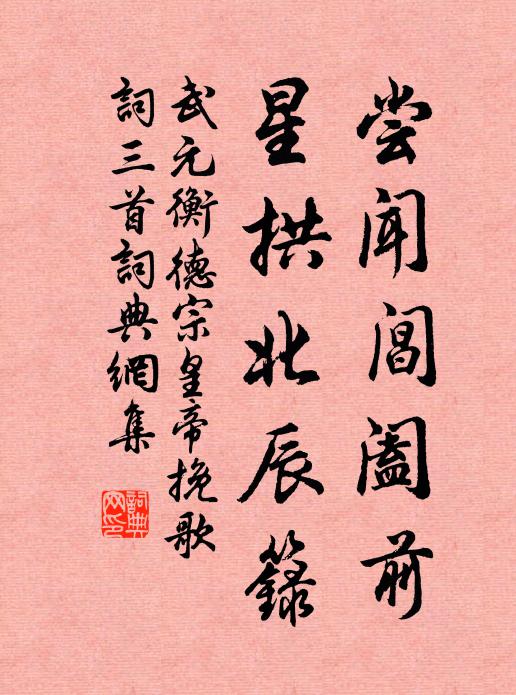 尝闻阊阖前
星拱北辰籙
武元衡德宗皇帝挽歌
詞三首詞典網集
詞典网印